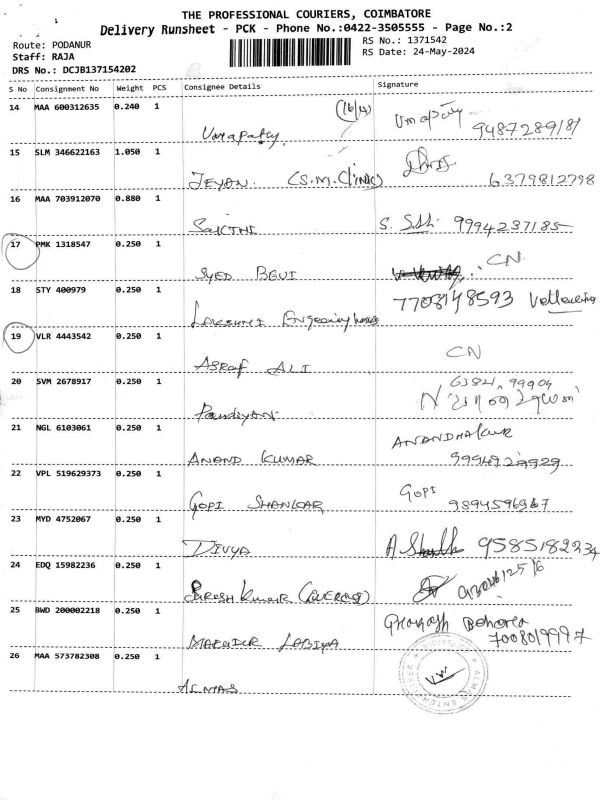 THE PROFESSIONAL COURIERS, COIMBATORE
Delivery Runsheet - PCK - Phone No.:0422-3505555 - Page No.:2
Route: PODANUR
Staff: RAJA
DRS No.: DCJB137154202
RS No.: 1371542
RS Date: 24-May-2024
S No Consignment No Weight PCS Consignee Details Signature
14 MAA 600312635 0.240 1 Umapathy Umapathy 9487289181
15 SLM 346622163 1.050 1 JEYAN. (S.M.Clinic) 6379812798
16 MAA 703912070 0.880 1 SAKTHI S. 9994237185
17 PMK 1318547 0.250 1 SYED BEVI CN
18 STY 400979 0.250 1 LAKSHMI 7708148593
19 VLR 4443542 0.250 1 ASRAF ALI CN
20 SVM 2678917 0.250 1 Pandiyan
21 NGL 6103061 0.250 1 ANAND KUMAR
22 VPL 519629373 0.250 1 GOPI SHANKAR GOPI
23 MYD 4752067 0.250 1 DIVYA 9585182234
24 EDQ 15982236 0.250 1 Suresh Kumar
25 BWD 200002218 0.250 1 7008019997
26 MAA 573782308 0.250 1 ALMAS